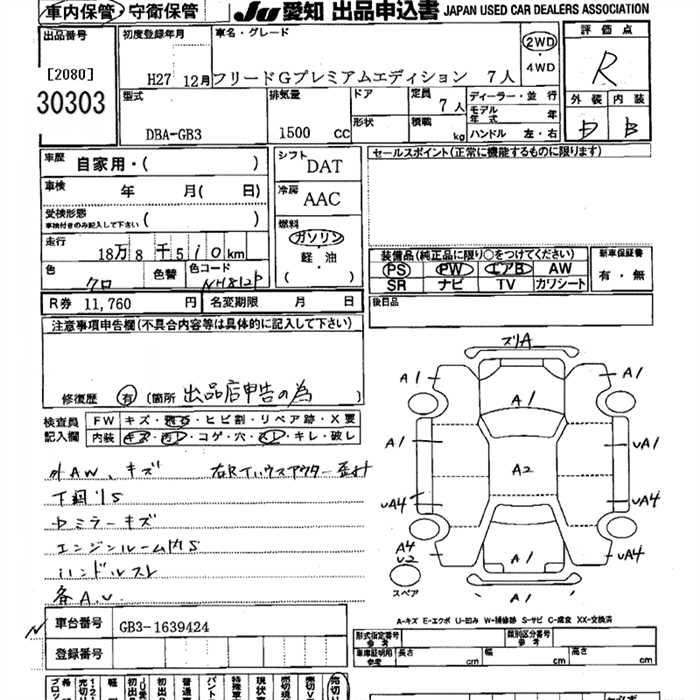 車内保管・守衛保管 JU 愛知 出品申込書 JAPAN USED CAR DEALERS ASSOCIATION
出品番号 初度登録年月 車名・グレード 2WD 評価点
[2080] H27 12月 フリードGプレミアムエディション 7人 ・4WD R
30303 型式 排気量 ドア 定員 7人 ディーラー・並行 外装 内装
形状 積載 kg モデル年式 年
DBA-GB3 1500 cc ハンドル 左・右 B
車歴 自家用・( ) シフト DAT セールスポイント(正常に機能するものに限ります)
車検 年 月( 日) 冷房 AAC
受検形態 ( )
車検付きのみ記入して下さい
燃料 ガソリン
走行 18万8千510km ・軽・油・ 装備品(純正品に限り○をつけてください) 新車保証書
色 クロ 色替 色コード NH812P ( ) PS PW エアB AW 有・無
SR ナビ TV カワシート
R券 11,760 円 名変期限 月 日 後日品
注意事項申告欄(不具合内容等は具体的に記入して下さい)
修復歴 有 (箇所 出品店申告の為 )
検査員記入欄 FW キズ・飛石・ヒビ割・リペア跡・X要
内装 キズ・汚レ・コゲ・穴・スレ・キレ・破レ
外AW、キズ
下廻りS
中ミラーキズ
エンジンルーム内S
ハンドルスレ
各A.U.
ズリA
A1 A1 A1
A1 A2 UA1
UA4 UA4
A4 U2 A1 UA4
スペア A1
A-キズ E-エクボ U-凹み W-補修跡 S-サビ C-腐食 XX-交換済
車台番号 GB3-1639424 形式指定番号 参考 類別区分番号 参考
登録番号 車庫証明用 参考 長さ cm 幅 cm 高さ cm